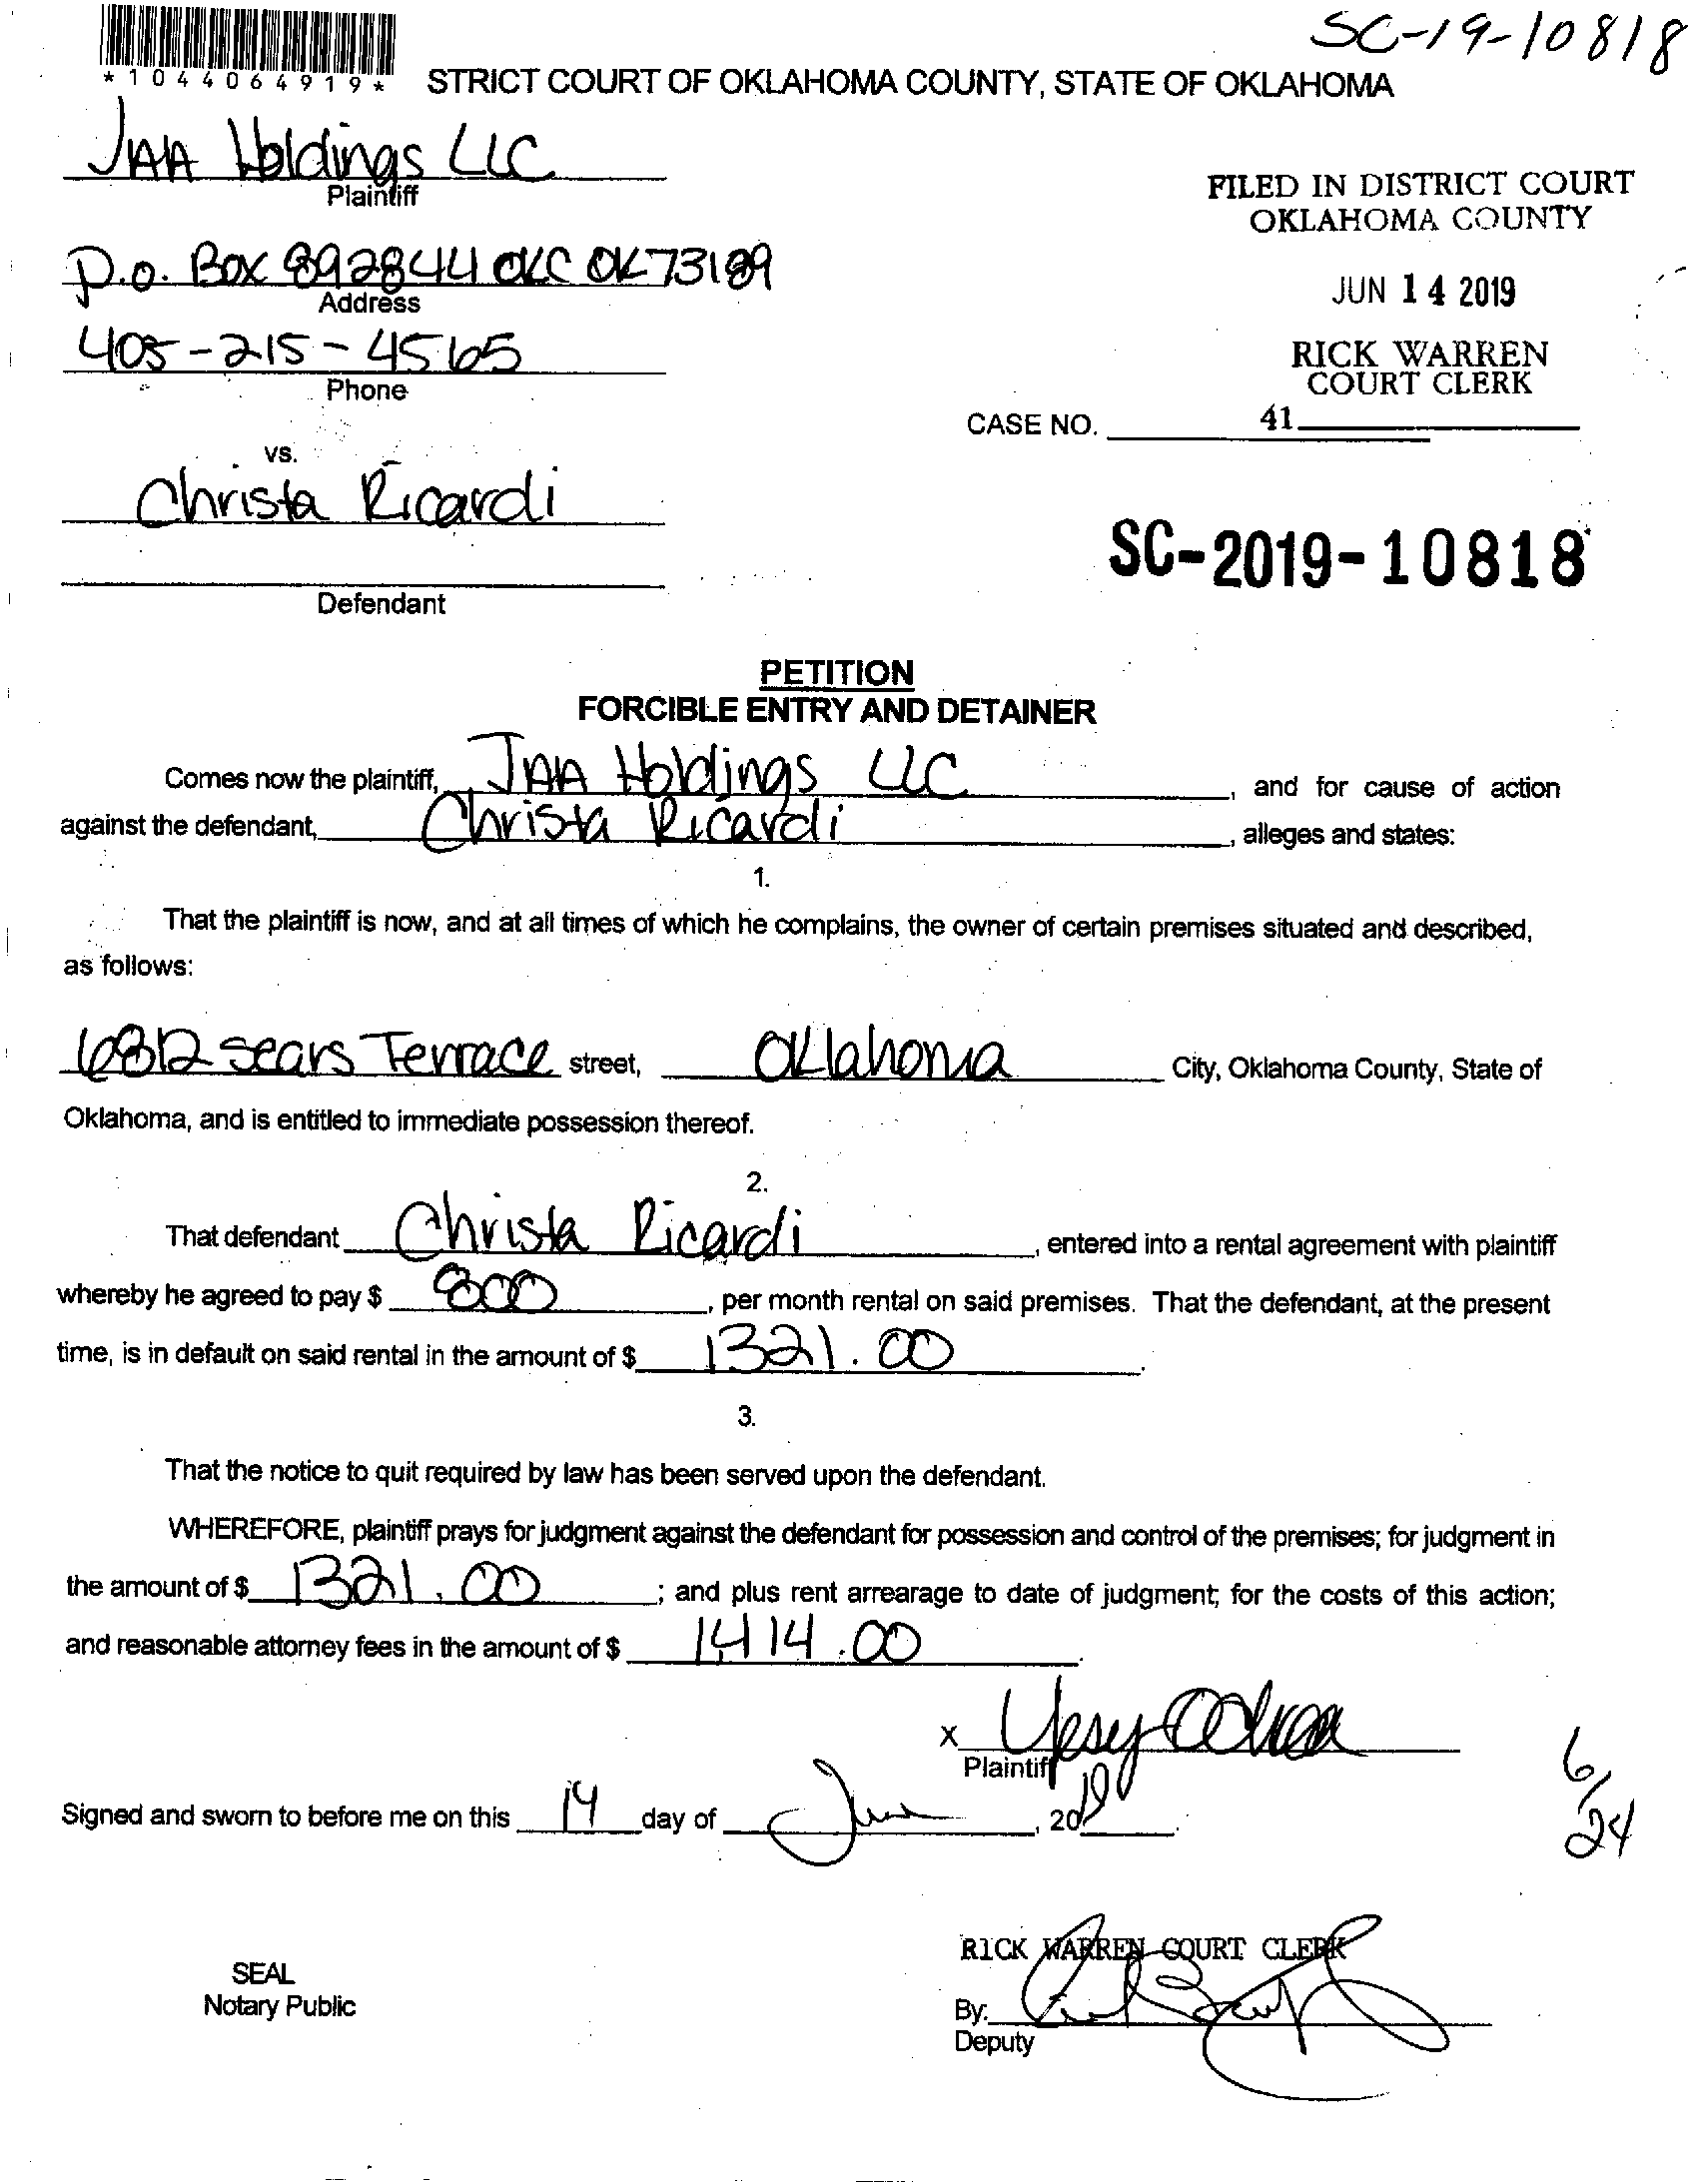 SC-19-10818
*1044064919*
STRICT COURT OF OKLAHOMA COUNTY, STATE OF OKLAHOMA
JAA Holdings LLC
Plaintiff
FILED IN DISTRICT COURT
OKLAHOMA COUNTY
P.O. Box 892844 OKC OK 73189
Address
JUN 14 2019
405-215-4565
Phone
RICK WARREN
COURT CLERK
CASE NO. 41
vs.
Christa Ricardi
SC-2019-10818
Defendant
PETITION
FORCIBLE ENTRY AND DETAINER
Comes now the plaintiff, JAA Holdings LLC, and for cause of action
against the defendant, Christa Ricardi, alleges and states:
1.
That the plaintiff is now, and at all times of which he complains, the owner of certain premises situated and described,
as follows:
6812 Sears Terrace street, Oklahoma City, Oklahoma County, State of
Oklahoma, and is entitled to immediate possession thereof.
2.
That defendant Christa Ricardi, entered into a rental agreement with plaintiff
whereby he agreed to pay $ 800, per month rental on said premises. That the defendant, at the present
time, is in default on said rental in the amount of $ 1321.00.
3.
That the notice to quit required by law has been served upon the defendant.
WHEREFORE, plaintiff prays for judgment against the defendant for possession and control of the premises; for judgment in
the amount of $ 1321.00; and plus rent arrearage to date of judgment; for the costs of this action;
and reasonable attorney fees in the amount of $ 1414.00.
X
Plaintiff
6/24
Signed and sworn to before me on this 14 day of June, 2019.
RICK WARREN COURT CLERK
SEAL
Notary Public
By:
Deputy